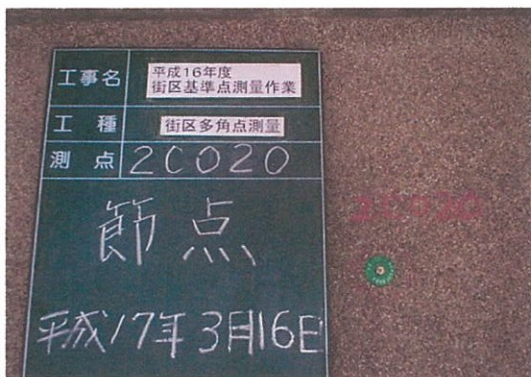 工事名
平成16年度
街区基準点測量作業
工種
街区多角点測量
測点
2C020
節点
平成17年3月16日
2C020